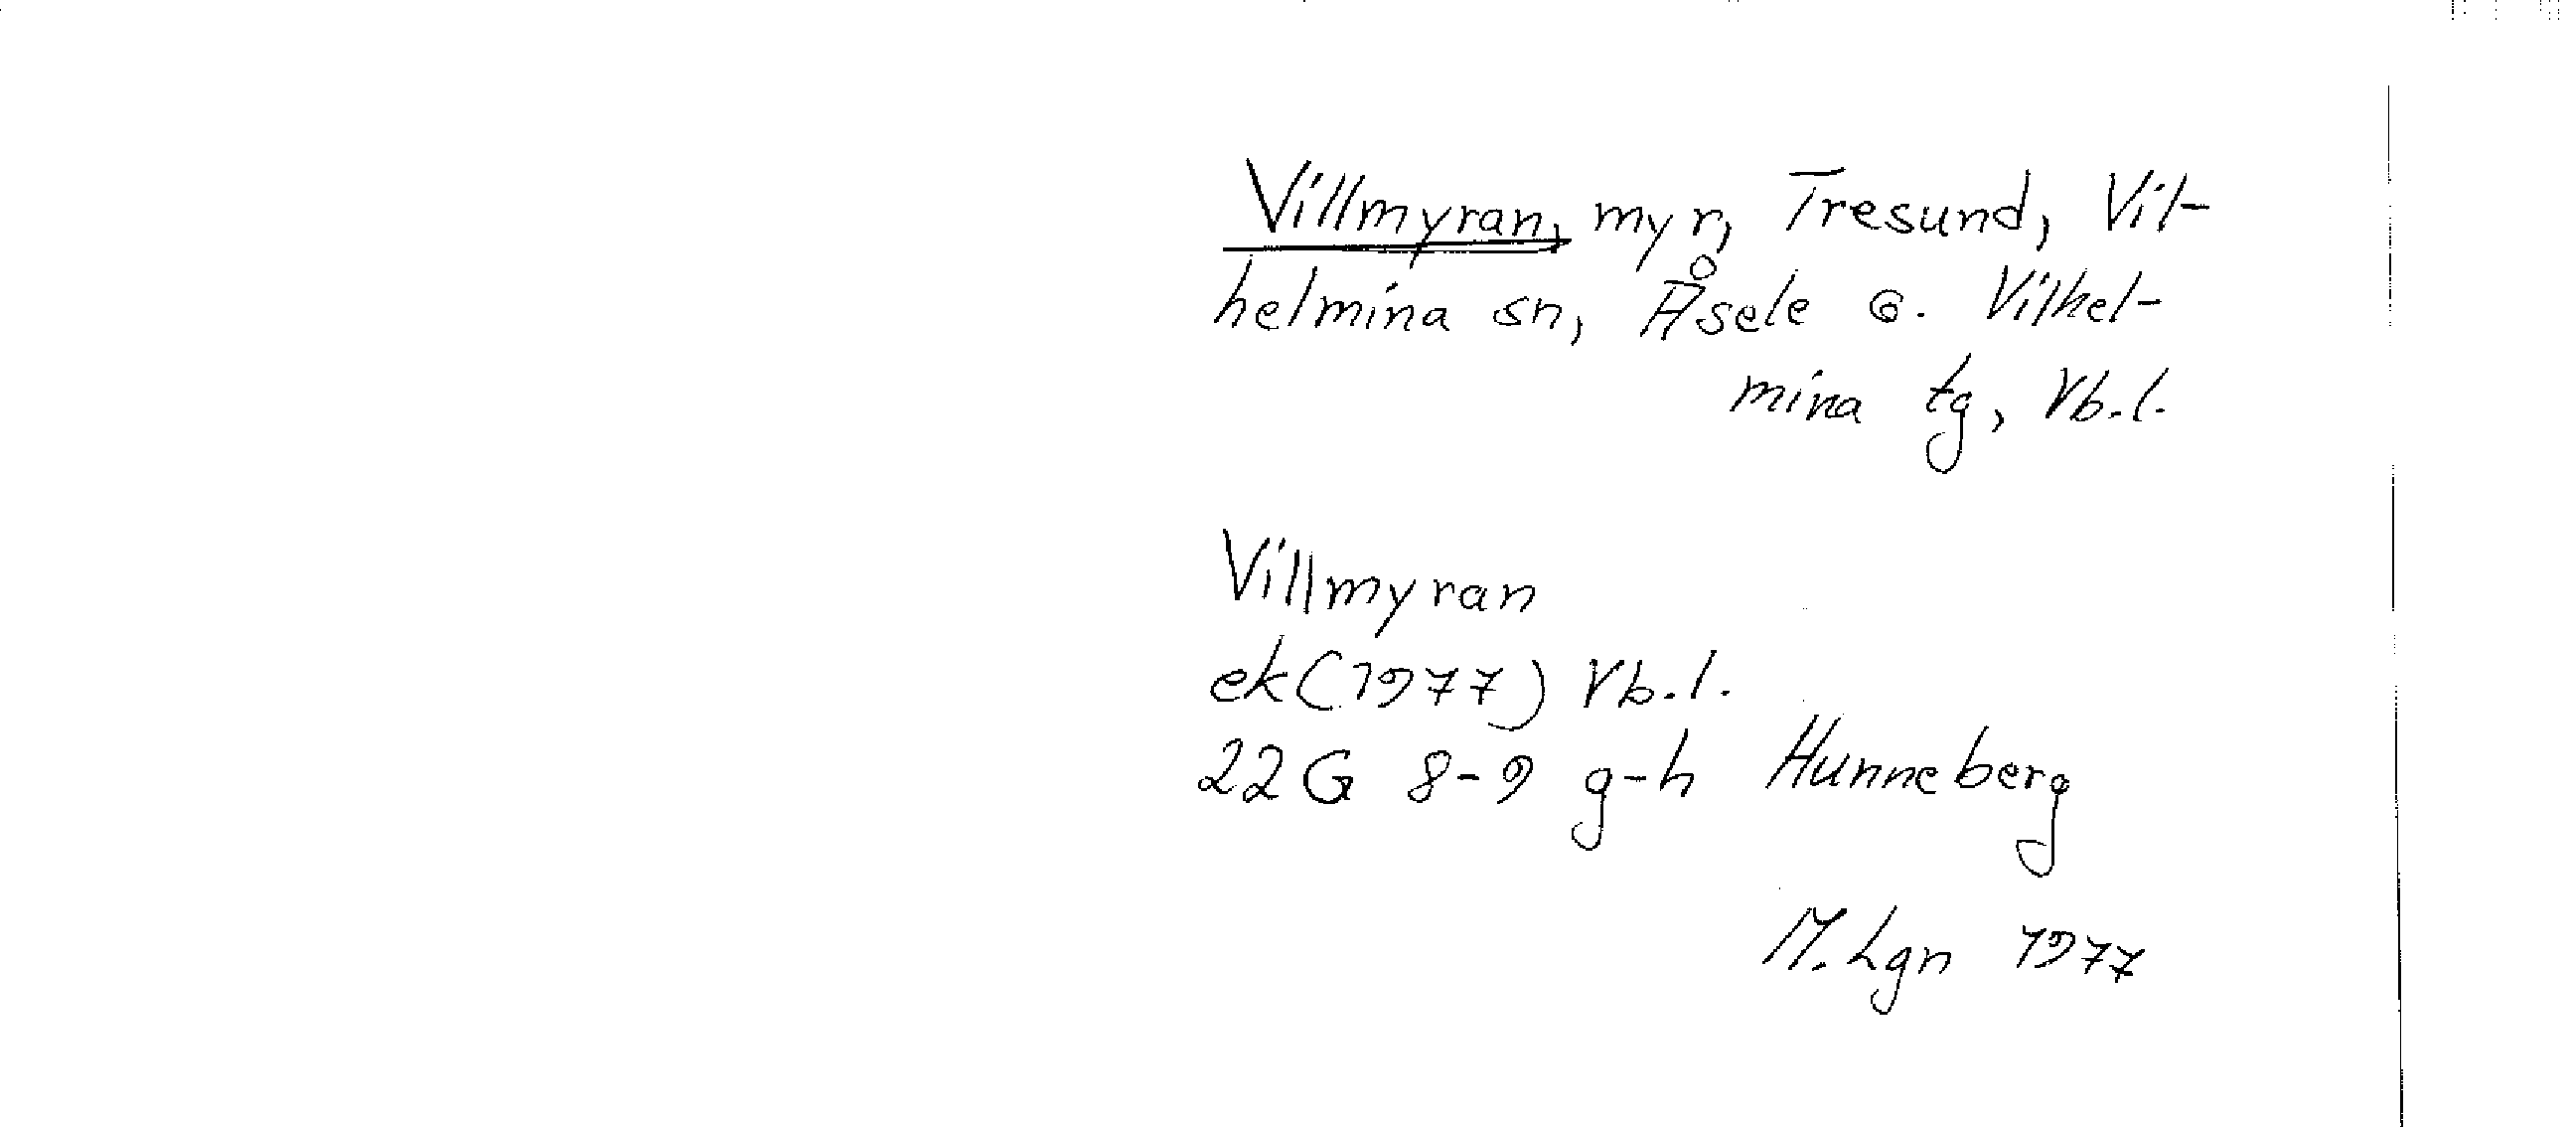 Villmyran, myr, Tresund, Vil-
helmina sn, Åsele o. Vilhel-
mina tg, Vb.l.
Villmyran
ek (1977) Vb.l.
22 G 8-9 g-h Hunneberg
M. Lgn 1977